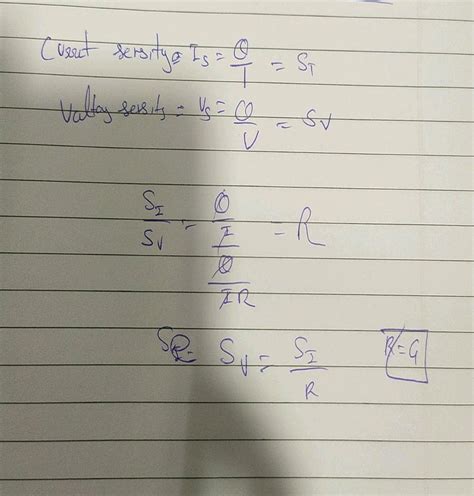 Current sensity = I_S = θ/I = S_I
Voltag sensity = V_S = θ/V = S_V
S_I/S_V = (θ/I)/(θ/IR) = R
S_V = S_I/R R=G